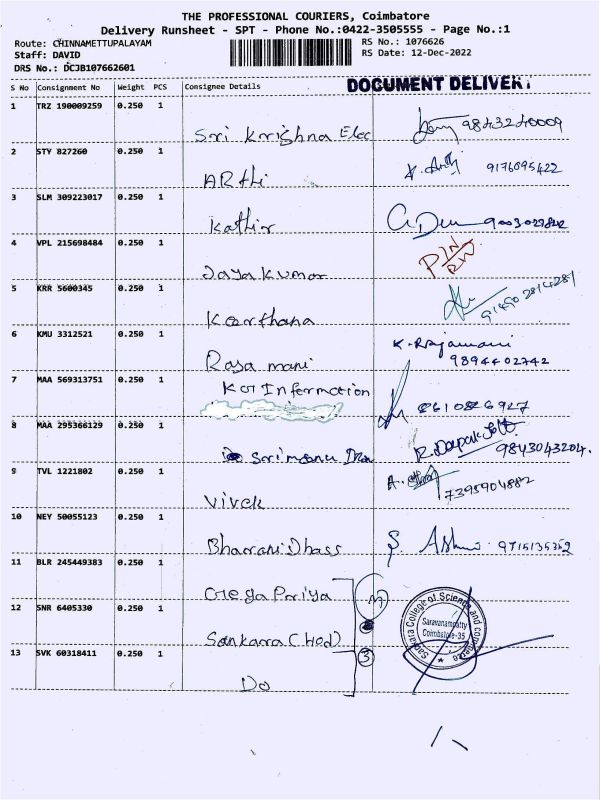 THE PROFESSIONAL COURIERS, Coimbatore
Delivery Runsheet - SPT - Phone No.:0422-3505555 - Page No.:1
Route: CHINNAMETTUPALAYAM
RS No.: 1076626
Staff: DAVID
RS Date: 12-Dec-2022
DRS No.: DCJB107662601
S No Consignment No Weight PCS Consignee Details
DOCUMENT DELIVER
1 TRZ 190009259 0.250 1
Sri Krishna Elec 9843240009
2 STY 827260 0.250 1
ARthi 9176095422
3 SLM 309223017 0.250 1
Kathir
4 VPL 215698484 0.250 1
Jaya Kumar
5 KRR 5600345 0.250 1
Keerthana
6 KMU 3312521 0.250 1
K. Rajamani
Rasa mani 9894402742
7 MAA 569313751 0.250 1
KGI Information
8 MAA 295366129 0.250 1
9843043204.
9 TVL 1221802 0.250 1
Vivek 7395904882
10 NEY 50055123 0.250 1
Bharani Dhass 9715135352
11 BLR 245449383 0.250 1
Priya
12 SNR 6405330 0.250 1
Sankara (Hod)
13 SVK 60318411 0.250 1
3
Do
Sankara College of Science and commerce
Saravanampatty
Coimbatore-35